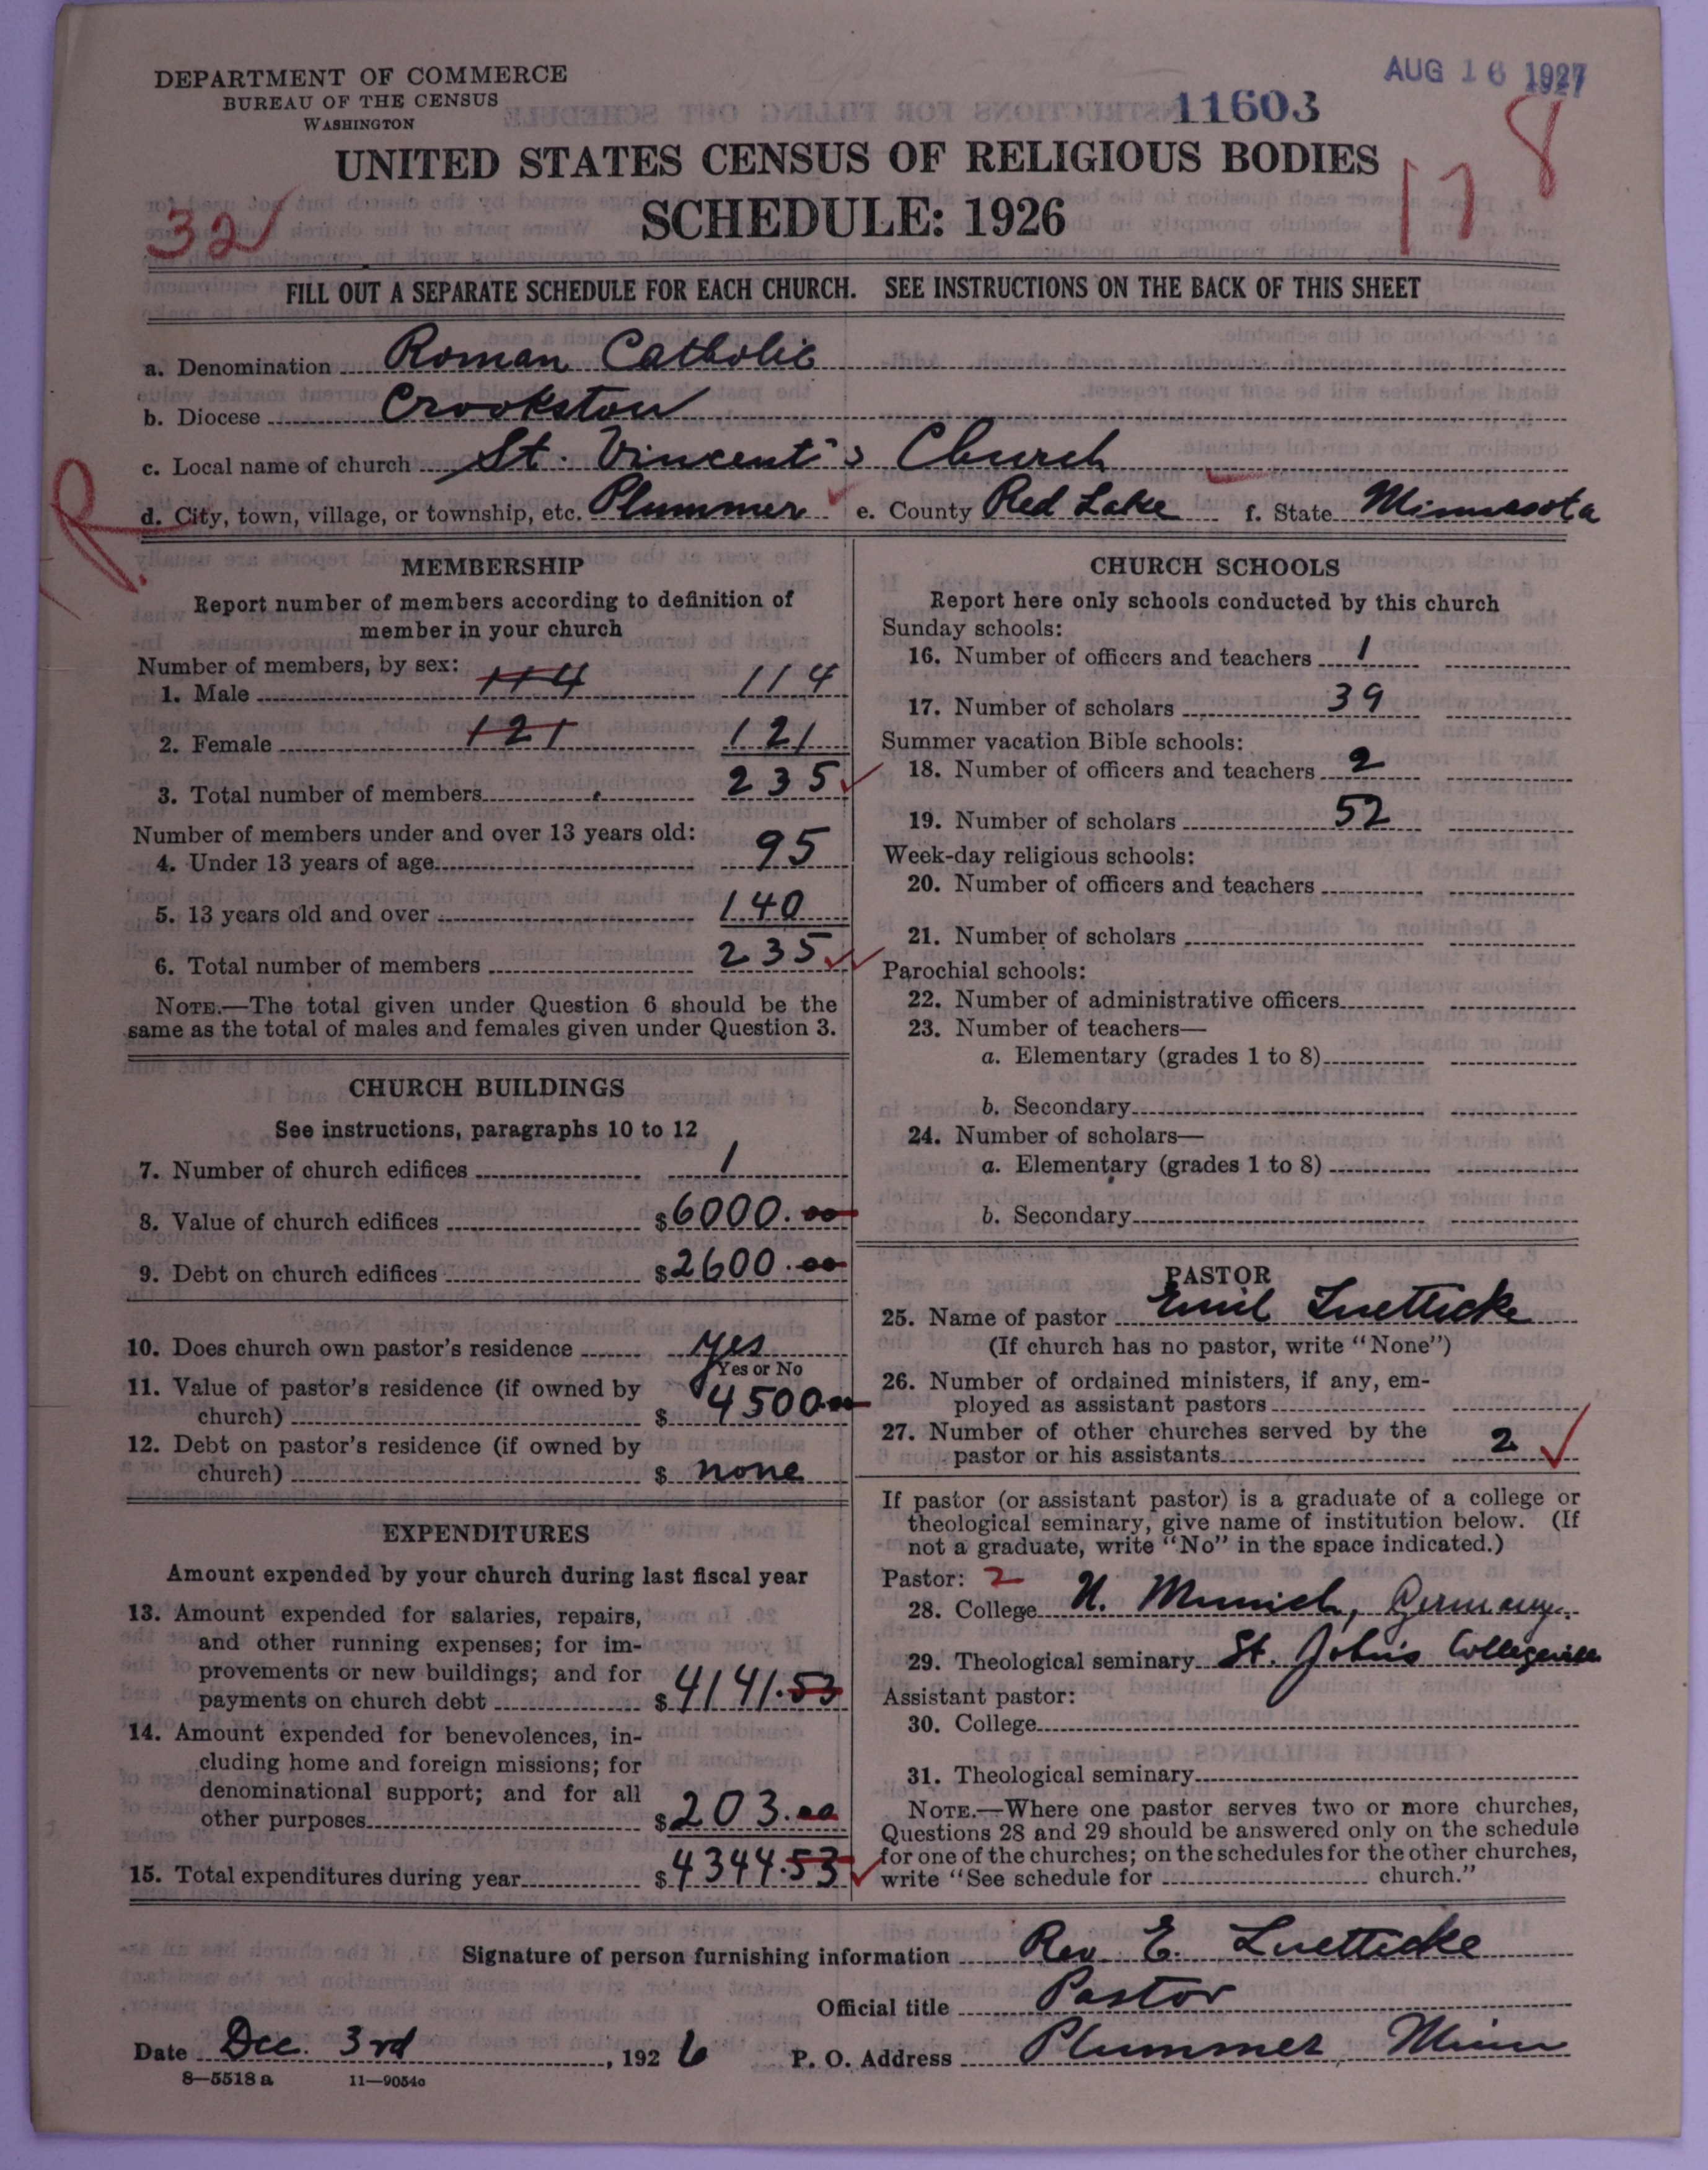 DEPARTMENT OF COMMERCE
BUREAU OF THE CENSUS
WASHINGTON
AUG 16 1927
11603
UNITED STATES CENSUS OF RELIGIOUS BODIES
SCHEDULE: 1926
32
117 8
FILL OUT A SEPARATE SCHEDULE FOR EACH CHURCH. SEE INSTRUCTIONS ON THE BACK OF THIS SHEET
a. Denomination Roman Catholic
b. Diocese Crookston
c. Local name of church St. Vincent's Church
R.
d. City, town, village, or township, etc. Plummer e. County Red Lake f. State Minnesota
MEMBERSHIP
Report number of members according to definition of
member in your church
Number of members, by sex:
1. Male 114 114
2. Female 121 121
3. Total number of members 235
Number of members under and over 13 years old:
4. Under 13 years of age 95
5. 13 years old and over 140
6. Total number of members 235
NOTE.—The total given under Question 6 should be the
same as the total of males and females given under Question 3.
CHURCH BUILDINGS
See instructions, paragraphs 10 to 12
7. Number of church edifices 1
8. Value of church edifices $6000.00
9. Debt on church edifices $2600.00
10. Does church own pastor's residence yes
Yes or No
11. Value of pastor's residence (if owned by
church) $ $4500.00
12. Debt on pastor's residence (if owned by
church) $ none
EXPENDITURES
Amount expended by your church during last fiscal year
13. Amount expended for salaries, repairs,
and other running expenses; for im-
provements or new buildings; and for
payments on church debt $4141.53
14. Amount expended for benevolences, in-
cluding home and foreign missions; for
denominational support; and for all
other purposes $203.00
15. Total expenditures during year $4344.53
CHURCH SCHOOLS
Report here only schools conducted by this church
Sunday schools:
16. Number of officers and teachers 1
17. Number of scholars 39
Summer vacation Bible schools:
18. Number of officers and teachers 2
19. Number of scholars 52
Week-day religious schools:
20. Number of officers and teachers
21. Number of scholars
Parochial schools:
22. Number of administrative officers
23. Number of teachers—
a. Elementary (grades 1 to 8)
b. Secondary
24. Number of scholars—
a. Elementary (grades 1 to 8)
b. Secondary
PASTOR
25. Name of pastor Emil Luetticke
(If church has no pastor, write "None")
26. Number of ordained ministers, if any, em-
ployed as assistant pastors
27. Number of other churches served by the
pastor or his assistants 2
If pastor (or assistant pastor) is a graduate of a college or
theological seminary, give name of institution below. (If
not a graduate, write "No" in the space indicated.)
Pastor: 2
28. College U. Munich, Germany
29. Theological seminary St. John's Collegeville
Assistant pastor:
30. College
31. Theological seminary
NOTE.—Where one pastor serves two or more churches,
Questions 28 and 29 should be answered only on the schedule
for one of the churches; on the schedules for the other churches,
write "See schedule for church."
Signature of person furnishing information Rev. E. Luetticke
Official title Pastor
Date Dec. 3rd, 1926 P. O. Address Plummer, Minn
8—5518 a 11—9054c